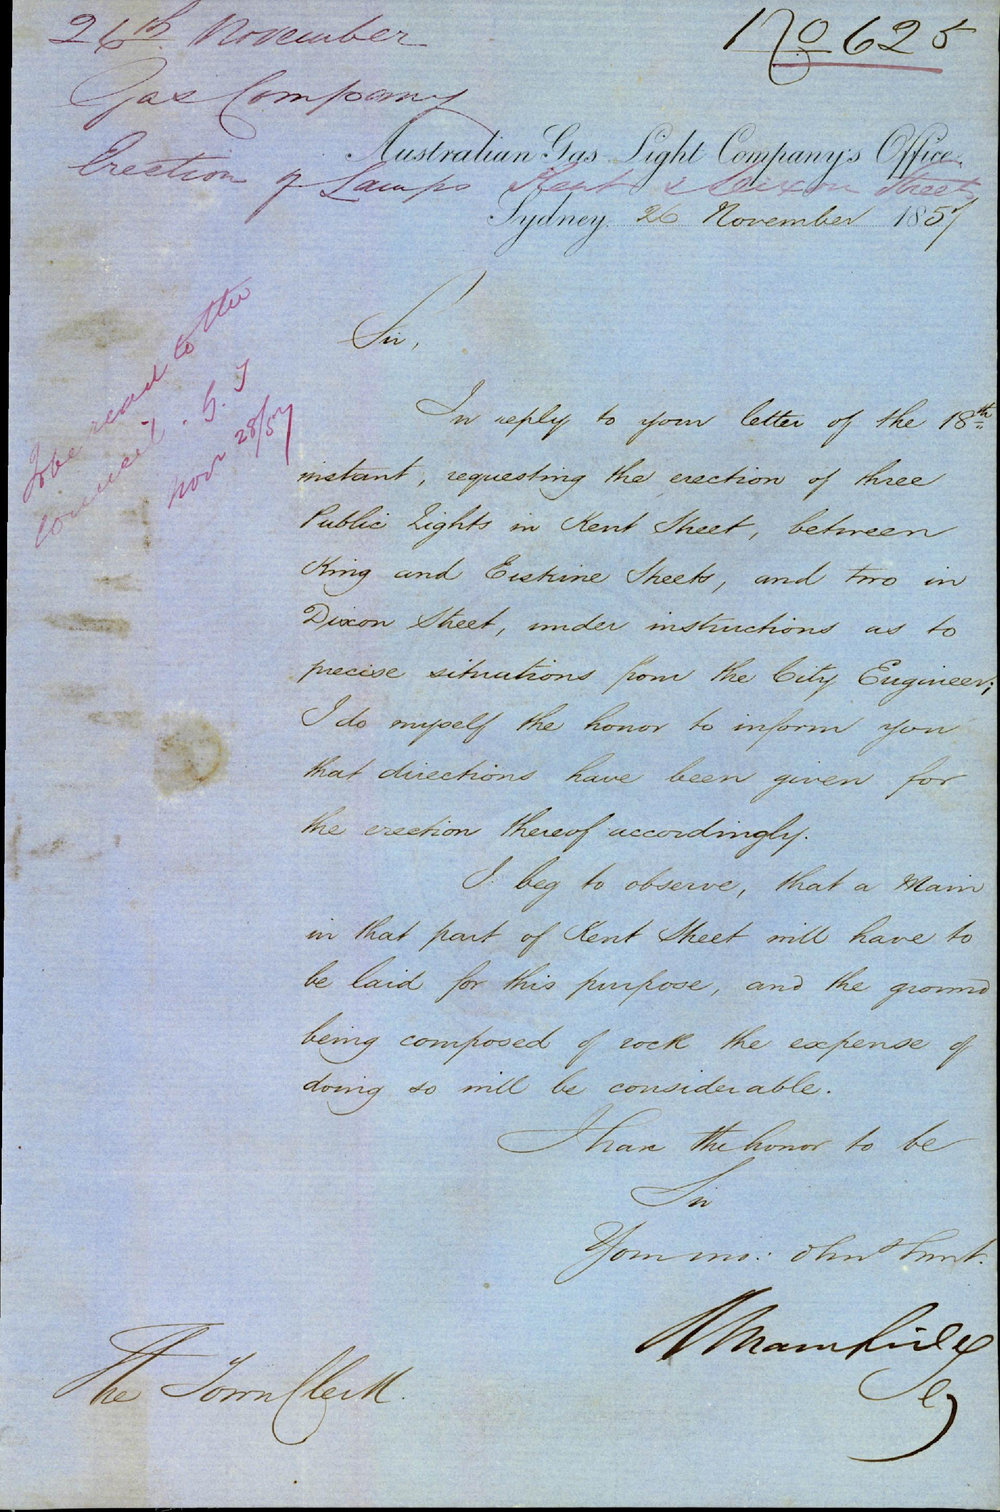 26th November
No 625
Gas Company
Australian Gas Light Company's Office.
Erection of Lamps Kent & Dixon Streets
Sydney 26 November 1857
To be read to the
Council. G. T
Novr 28/57
Sir,
In reply to your letter of the 18th
instant, requesting the erection of three
Public Lights in Kent Street, between
King and Erskine Streets, and two in
Dixon Street, under instructions as to
precise situations from the City Engineer;
I do myself the honor to inform you
that directions have been given for
the erection thereof accordingly.
I beg to observe, that a Main
in that part of Kent Street will have to
be laid for this purpose, and the ground
being composed of rock the expense of
doing so will be considerable.
I have the honor to be
Sir
Your mo: obedt Servt.
Mansfield
Sey
The Town Clerk.